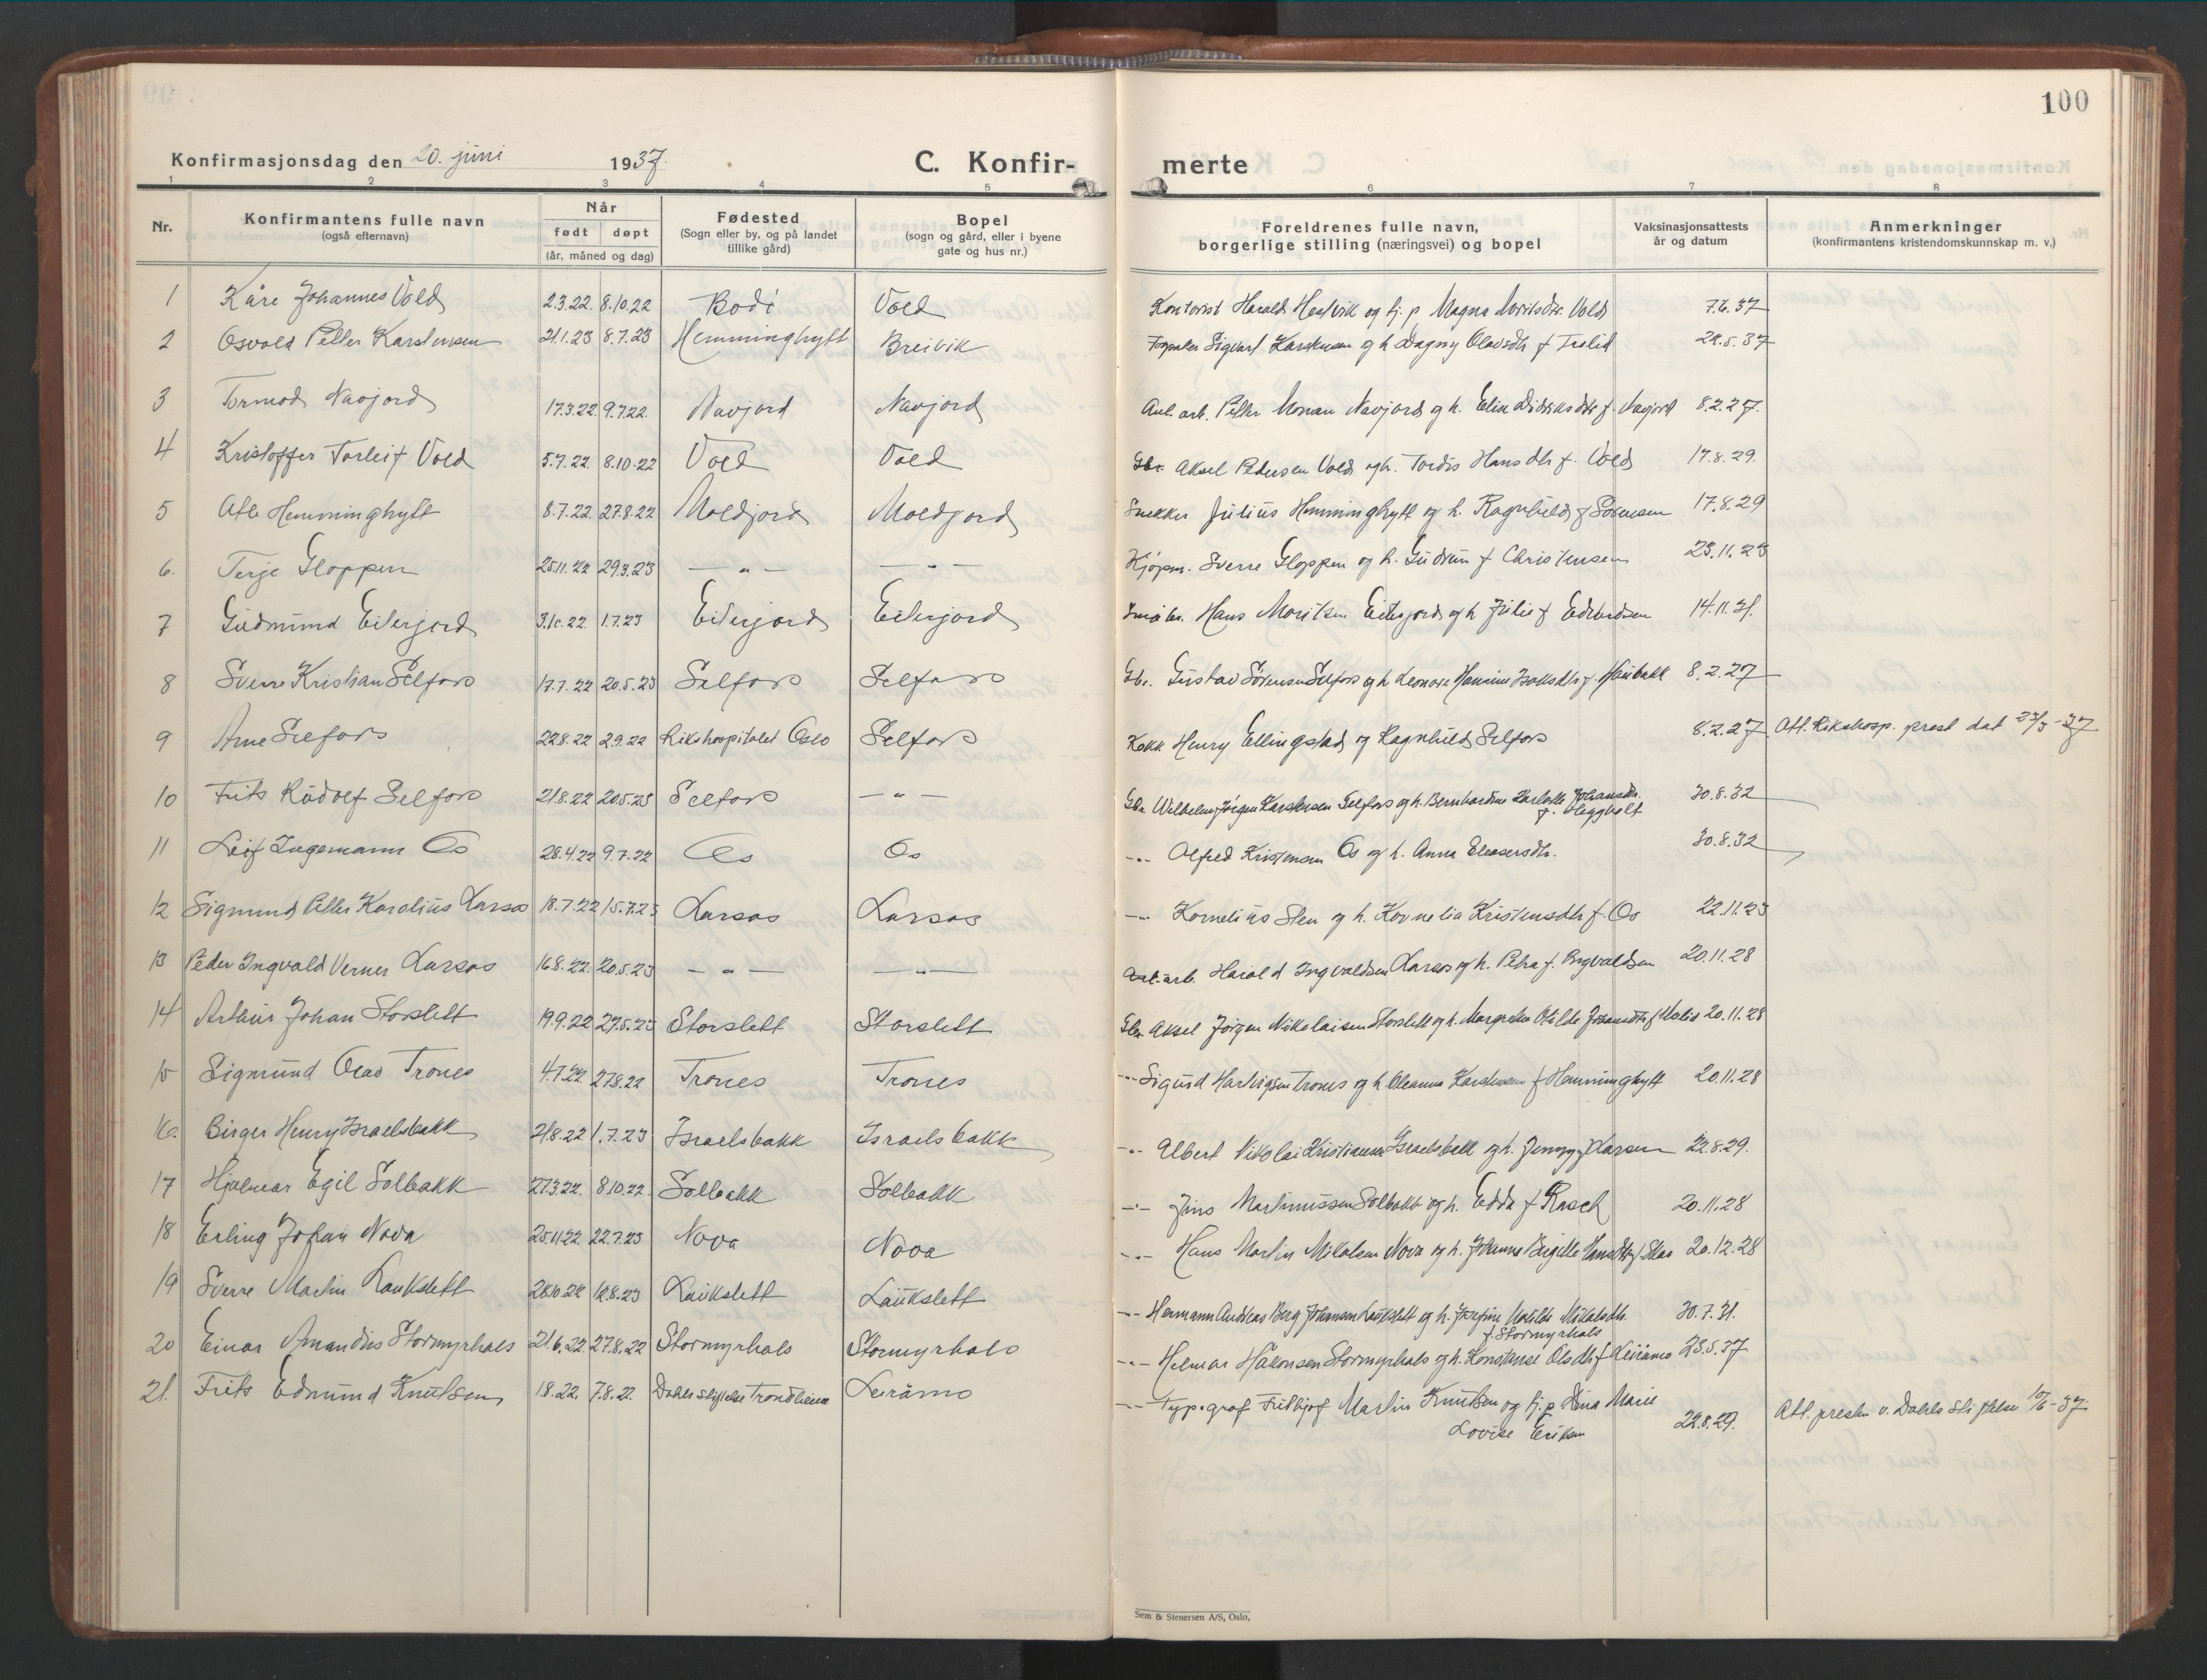 100
Konfirmasjonsdag den 20. juni 1937. C. Konfir-merte
1 2 3 4 5 6 7 8
Nr. Konfirmantens fulle navn (også efternavn) Når født døpt (år, måned og dag) Fødested (Sogn eller by, og på landet tillike gård) Bopel (sogn og gård, eller i byene gate og hus nr.) Foreldrenes fulle navn, borgerlige stilling (næringsvei) og bopel Vaksinasjonsattests år og datum Anmerkninger (konfirmantens kristendomskunnskap m. v.)
1 Kåre Johannes Vold 2.3.22 8.10.22 Bodö Vold Kontorist Harald Hestvik og fj. p. Magna Vold 7.6.37
2 Osvald Petter Karstensen 21.1.23 8.7.23 Hemminghytt Breivik Sigvart Karstensen og h. Dagny Olavsdtr f. 22.5.37
3 Tormod Navjord 17.3.22 9.7.22 Navjord Navjord Anl. arb. Petter Monan Navjord og h. Elin Didriksdtr f. Navjord 8.2.27.
4 Kristoffer Torleif Vold 5.7.22 8.10.22 Vold Vold Gbr. Aksel Pedersen Vold og h. Tordis Hansdtr f. Vold 17.8.29.
5 Atle Hemminghytt 8.7.22 27.8.22 Moldjord Moldjord Snekker Julius Hemminghytt og h. Ragnhild f. Sörensen 17.8.29
6. Terje Gloppen 25.11.22 29.3.23 — " — — " — Kjöpm. Sverre Gloppen og h. Gudrun f. Christensen 23.11.23
7 Gudmund Eiterjord 3.10.22 1.7.23 Eiterjord Eiterjord Småbr. Hans Moritsen Eiterjord og h. Julie f. Edvardsen 14.11.31.
8 Sverre Kristian Selfors 17.7.22 20.5.23 Selfors Selfors Gbr. Gustav Sörensen Selfors og h. Leonore Hansine Isaksdtr f. Haubakk 8.2.27
9 Arne Selfors 22.8.22 2.9.22 Rikshospitalet Oslo Selfors Kokk Henry Ellingstad og Ragnhild Selfors 8.2.27 Att. Rikshosp. prest dat 23/3-37
10 Frits Rudolf Selfors 21.8.22 20.5.23 Selfors — " — Gbr. Wilhelm Jörgen Karstensen Selfors og h. Bernhardine Karlotte Johansdtr. f. Heggholt 30.8.32
11 Leif Ingemann Os 28.4.22 9.7.22 Os Os — " — Alfred Kristensen Os og h. Anna Eleasersdtr. 30.8.32
12 Sigmund Petter Karolius Larsos 18.7.22 15.7.23 Larsos Larsos — " — Kornelius Sten og h. Kornelia Kristensdtr f. Os 22.11.23
13 Peder Ingvald Verner Larsos 16.8.22 20.5.23 — " — — " — Anl. arb. Harald Ingvaldsen Larsos og h. Petra f. Ingvaldsen 20.11.28
14 Arthur Johan Storslett 19.9.22 27.5.23 Storslett Storslett Gbr. Aksel Jörgen Nikolaisen Storslett og h. Margrethe Otilde Johansdtr f. Molid 20.11.28
15 Sigmund Olav Trones 4.7.22 27.8.22 Trones Trones — " — Sigurd Hartvigsen Trones og h. Oleanna Karstensen f. Hemminghytt 20.11.28
16. Birger Henry Israelsbakk 21.8.22 1.7.23 Israelsbakk Israelsbakk — " — Albert Nikolai Kristiansen Israelsbakk og h. Jenny f. Larsen 22.8.29.
17 Hjalmar Egil Solbakk 27.3.22. 8.10.22. Solbakk Solbakk — " — Jens Martinussen Solbakk og h. Edda f. Rasch 20.11.28
18 Erling Johan Nova 25.11.22 22.7.23 Nova Nova — " — Hans Martin Mikalsen Nova og h. Johanna Birgitte Hansdtr f. Skar 20.12.28
19 Sverre Martin Laukslett 28.10.22 12.8.23 Laukslett Laukslett — " — Hermann Andreas Berg Johansen Laukslett og h. Josefine Matilde Mikalsdtr. f. Stormyrhals 30.7.31.
20 Einar Amandus Stormyrhals 21.6.22 27.8.22 Stormyrhals Stormyrhals — " — Helmer Håkonsen Stormyrhals og h. Konstanse Olsdtr f. Leiråmo 23.5.37
21. Frits Edmund Knutsen 1.8.22. 7.8.22. Dahls stiftelse Trondheim Leiråmo — " — Typograf Frithjof Martin Knutsen og fj. p. Dina Marie Lovise Eriksen 22.8.29. Att. presten v. Dahls stiftelse 10/6-37.
Sem & Stenersen A/S, Oslo.